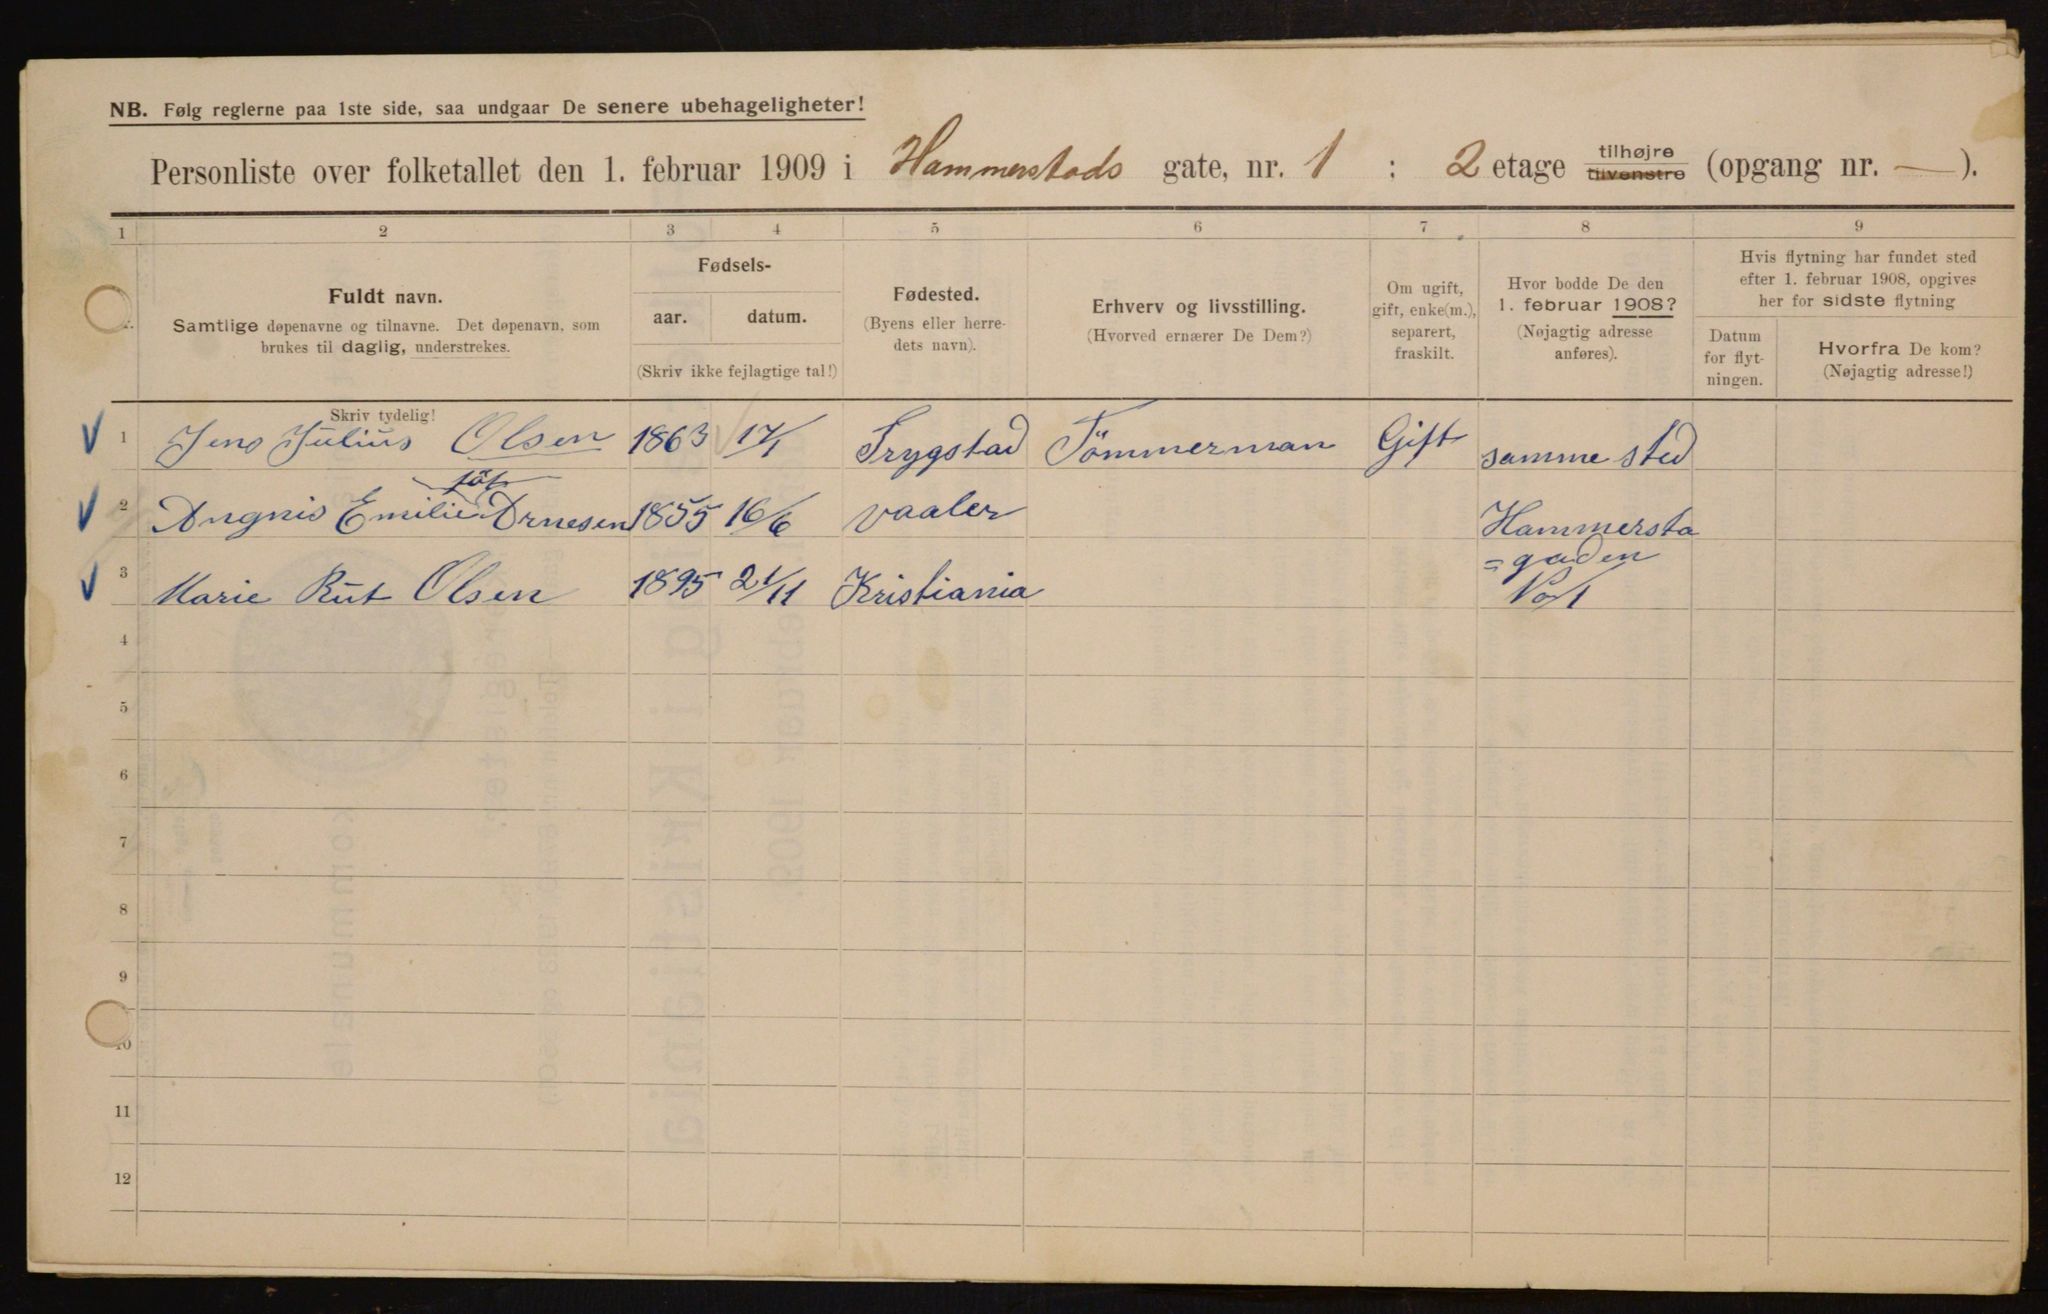 NB. Følg reglerne paa 1ste side, saa undgaar De senere ubehageligheter!
Personliste over folketallet den 1. februar 1909 i Hammerstads gate, nr. 1 : 2 etage tilhøjre tilvenstre (opgang nr. — ).
1 2 3 4 5 6 7 8 9
Fuldt navn.
Samtlige døpenavne og tilnavne. Det døpenavn, som
brukes til daglig, understrekes.
Skriv tydelig!
Fødsels-
aar. datum.
(Skriv ikke fejlagtige tal!)
Fødested.
(Byens eller herre-
dets navn).
Erhverv og livsstilling.
(Hvorved ernærer De Dem?)
Om ugift,
gift, enke(m.),
separert,
fraskilt.
Hvor bodde De den
1. februar 1908?
(Nøjagtig adresse
anføres).
Hvis flytning har fundet sted
efter 1. februar 1908, opgives
her for sidste flytning
Datum
for flyt-
ningen.
Hvorfra De kom?
(Nøjagtig adresse!)
1 Jens Julius Olsen 1863 17/1 Trygstad Tömmerman Gift samme sted
föt
2 Angnis Emilie Arnesen 1855 16/6 vaaler Hammersta
=gaden
3 Marie Rut Olsen 1895 21/11 Kristiania No 1
4
5
6
7
8
9
10
11
12